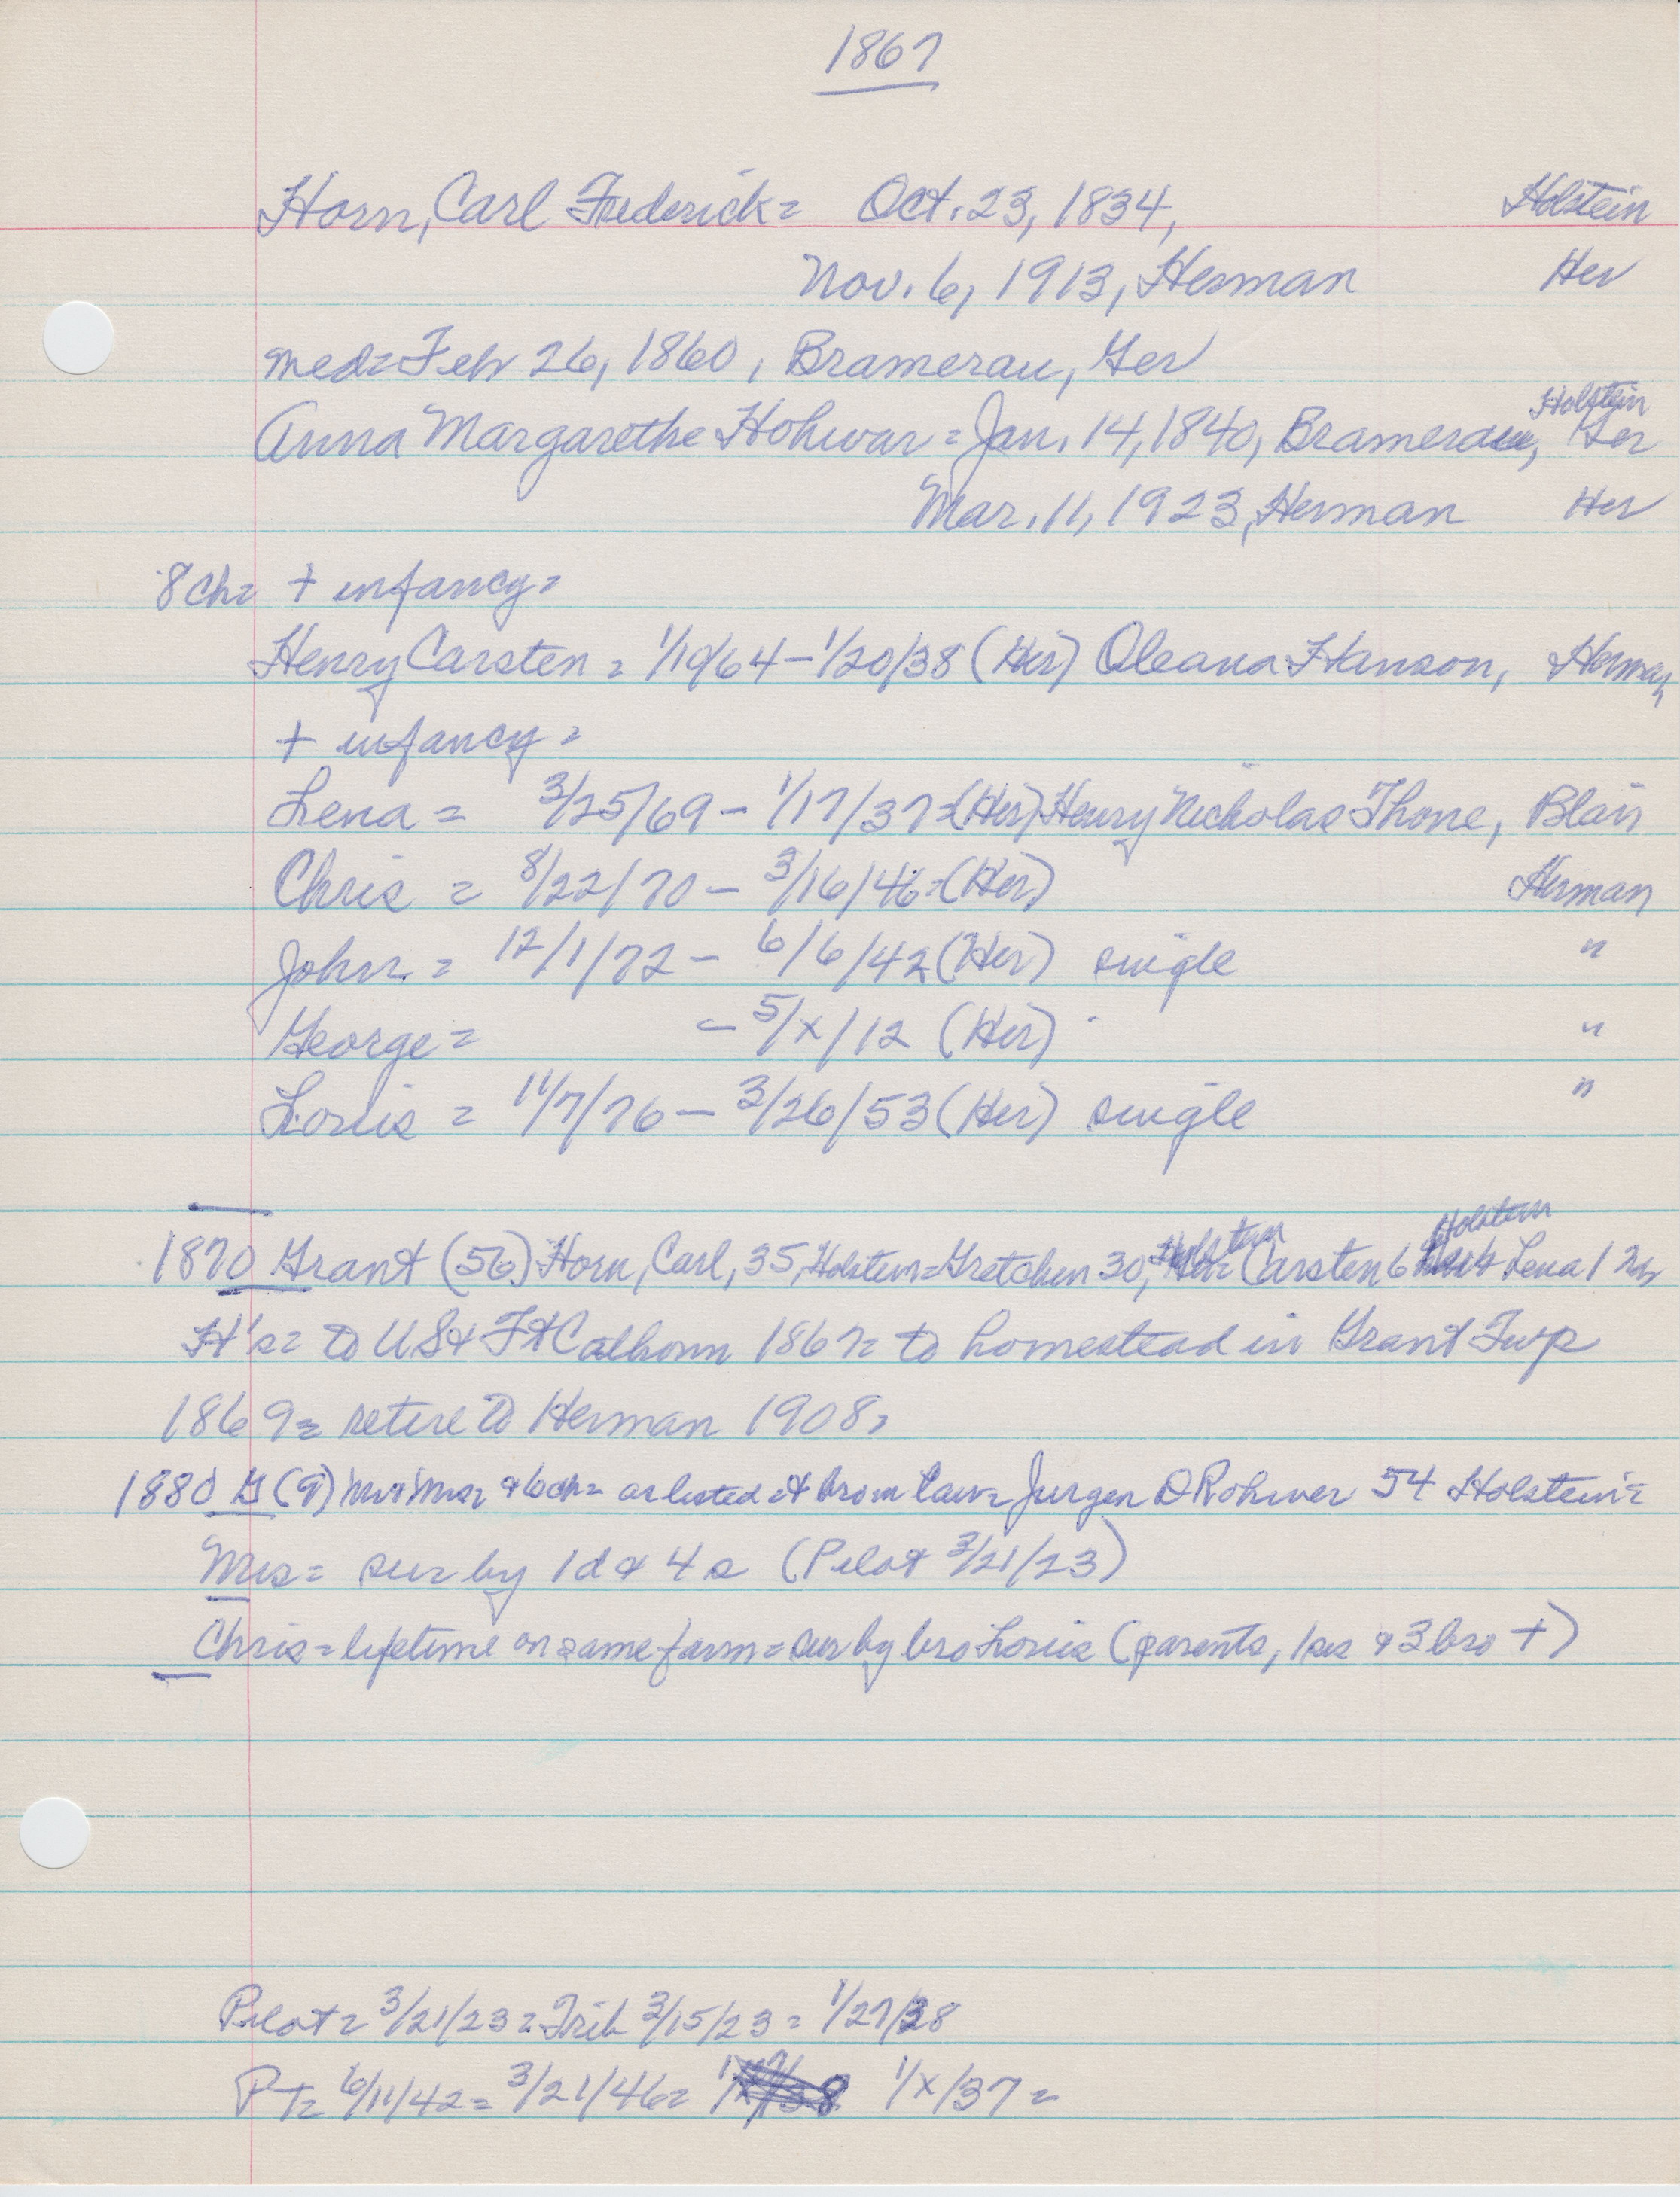 1867
Horn, Carl Frederick = Oct. 23, 1834, Holstein
Nov. 6, 1913, Herman Her
med = Feb 26, 1860, Bramerau, Ger
Holstein
Anna Margarethe Hohwar = Jan. 14, 1840, Bramerau, Ger
Mar. 11, 1923, Herman Her
8 ch = + infancy =
Henry Carsten = 1/19/64 – 1/20/38 (Her) Oleana Hanson, Herman,
+ infancy =
Lena = 3/25/69 – 1/17/37 = (Her) Henry Nicholas Thone, Blair
Chris = 8/22/70 – 3/16/46 = (Her) Herman
John = 12/1/72 – 6/6/42 (Her) single "
George = – 5/x/12 (Her) "
Louis = 11/7/76 – 3/26/53 (Her) single "
Holstein Holstein
1870 Grant (56) Horn, Carl, 35, Holstein = Gretchen 30, Carsten 6 Lena 1 Neb
H's = to US & Ft Calhoun 1867 = to homestead in Grant Twp
1869 = retire to Herman 1908 =
1880 G (9) Mr & Mrs & 6 ch = as listed & bro in law = Jurgen D Rohwer 54 Holstein =
Mrs = sur by 1 d & 4 s (Pilot 3/21/23)
Chris = lifetime on same farm = sur by bro Louis (parents, 1 sis & 3 bro +)
Pilot = 3/21/23 = Trib 3/15/23 = 1/27/38
PT = 6/11/42 = 3/21/46 = 1/x/37 =